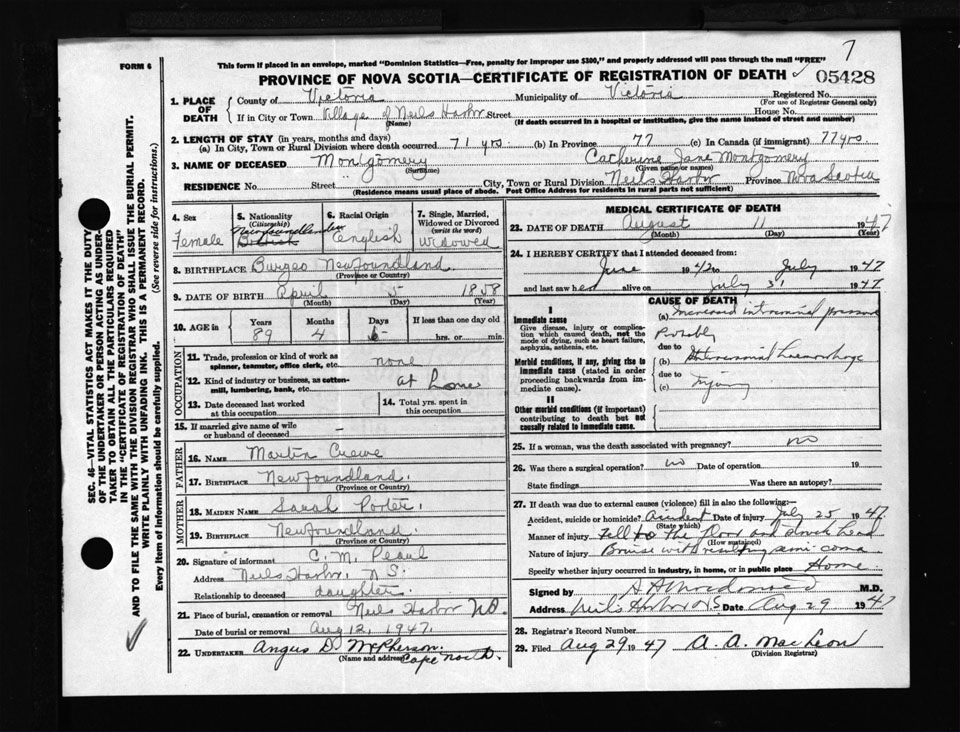 7
FORM 6
This form if placed in an envelope, marked "Dominion Statistics—Free, penalty for improper use $300," and properly addressed will pass through the mail "FREE"
PROVINCE OF NOVA SCOTIA—CERTIFICATE OF REGISTRATION OF DEATH ✓ 05428
1. PLACE OF DEATH { County of Victoria Municipality of Victoria Registered No.
(For use of Registrar General only)
If in City or Town Village of Neils Harbr Street House No.
(Name) (If death occurred in a hospital or institution, give the name instead of street and number)
2. LENGTH OF STAY (in years, months and days)
(a) In City, Town or Rural Division where death occurred 71 yrs. (b) In Province 77 (c) In Canada (if immigrant) 77 yrs
3. NAME OF DECEASED Montgomery Catherine Jane Montgomery
(Surname) (Given name or names)
RESIDENCE No. Street City, Town or Rural Division Neils Harbr Province Nova Scotia
(Residence means usual place of abode. Post Office Address for residents in rural parts not sufficient)
4. Sex Female
5. Nationality (Citizenship) Newfoundlander British
6. Racial Origin English
7. Single, Married, Widowed or Divorced (write the word) Widowed
8. BIRTHPLACE Burgeo Newfoundland.
(Province or Country)
9. DATE OF BIRTH April 5 1858
(Month) (Day) (Year)
10. AGE in Years 89 Months 4 Days 6 If less than one day old hrs. or min.
OCCUPATION
11. Trade, profession or kind of work as spinner, teamster, office clerk, etc. none
12. Kind of industry or business, as cotton-mill, lumbering, bank, etc. at home
13. Date deceased last worked at this occupation
14. Total yrs. spent in this occupation
15. If married give name of wife or husband of deceased -
FATHER
16. NAME Martin Crewe
17. BIRTHPLACE Newfoundland.
(Province or Country)
MOTHER
18. MAIDEN NAME Sarah Porter.
19. BIRTHPLACE Newfoundland.
(Province or Country)
20. Signature of informant C. M.
Address Neils Harbr, N S.
Relationship to deceased daughter.
21. Place of burial, cremation or removal Neils Harbor NS.
Date of burial or removal Aug 12, 1947.
22. UNDERTAKER Angus D. McPherson.
(Name and address) Cape North.
MEDICAL CERTIFICATE OF DEATH
23. DATE OF DEATH August 11 1947
(Month) (Day) (Year)
24. I HEREBY CERTIFY that I attended deceased from:
June 1942 to July 1947
and last saw her alive on July 31 1947
CAUSE OF DEATH
I
Immediate cause
Give disease, injury or complication which caused death, not the mode of dying, such as heart failure, asphyxia, asthenia, etc.
(a) Increased intracranial pressure
Possibly
due to
Morbid conditions, if any, giving rise to immediate cause (stated in order proceeding backwards from immediate cause).
(b) Intracranial haemorrhage
due to
(c) Injury
II
Other morbid conditions (if important) contributing to death but not causally related to immediate cause.
25. If a woman, was the death associated with pregnancy? no
26. Was there a surgical operation? no Date of operation 19
State findings Was there an autopsy?
27. If death was due to external causes (violence) fill in also the following:—
Accident, suicide or homicide? accident Date of injury July 25 1947
(State which)
Manner of injury Fell to the floor and struck head
(How sustained)
Nature of injury Bruise with resulting semi coma
Specify whether injury occurred in industry, in home, or in public place Home
Signed by M.D.
Address Neils Harbor N.S. Date Aug 29 1947
28. Registrar's Record Number
29. Filed Aug 29 1947 A. A. MacLeon
(Division Registrar)
SEC. 46—VITAL STATISTICS ACT MAKES IT THE DUTY
OF THE UNDERTAKER OR PERSON ACTING AS UNDERTAKER TO OBTAIN ALL THE PARTICULARS REQUIRED
IN THE "CERTIFICATE OF REGISTRATION OF DEATH"
AND TO FILE THE SAME WITH THE DIVISION REGISTRAR WHO SHALL ISSUE THE BURIAL PERMIT.
WRITE PLAINLY WITH UNFADING INK. THIS IS A PERMANENT RECORD.
Every item of information should be carefully supplied. (See reverse side for instructions.)